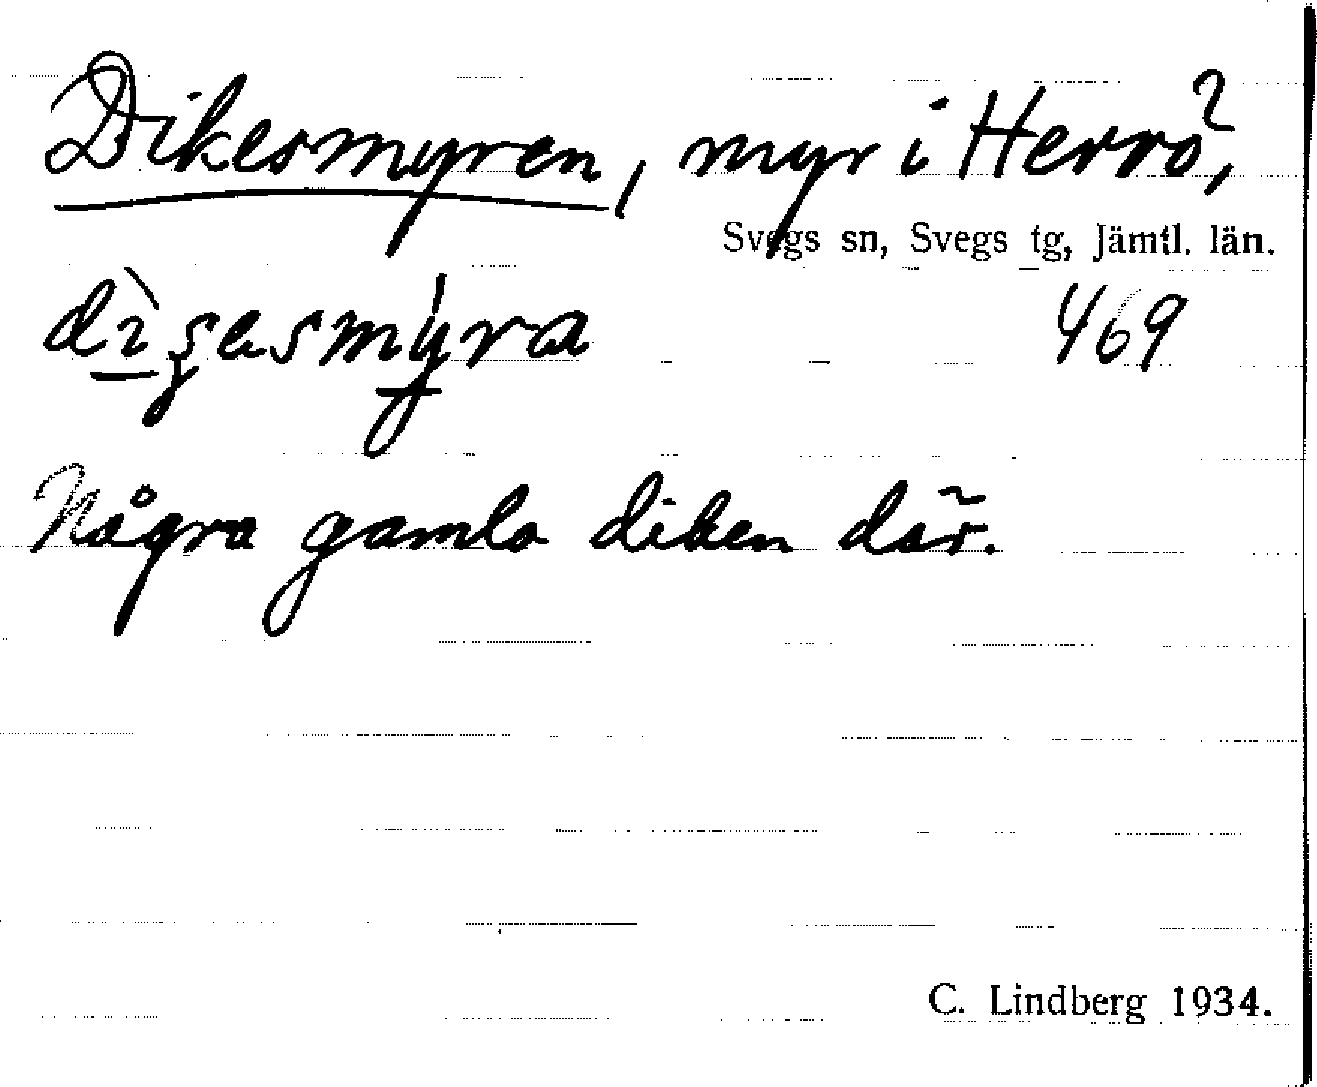 Dikesmyren, myr i Herrö,
Svegs sn, Svegs tg, Jämtl. län.
469
Några gamla diken där.
C. Lindberg 1934.